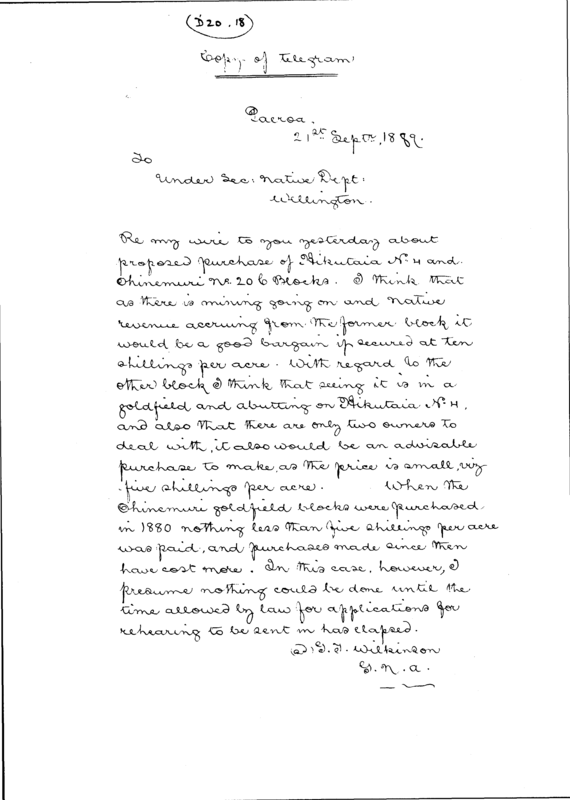 D20.18
Copy of Telegram
Paeroa.
21st Septr, 1889.
To
Under Sec: Native Dept:
Wellington.
Re my wire to you yesterday about
proposed purchase of Hikutaia No 4 and
Ohinemuri No. 20 C Blocks. I think that
as there is mining going on and native
revenue accruing from the former block it
would be a good bargain if secured at ten
shillings per acre. With regard to the
other block I think that seeing it is in a
goldfield and abutting on Hikutaia No 4,
and also that there are only two owners to
deal with, it also would be an advisable
purchase to make, as the price is small, viz
five shillings per acre. When the
Ohinemuri goldfield blocks were purchased
in 1880 nothing less than five shillings per acre
was paid, and purchases made since then
have cost more. In this case, however, I
presume nothing could be done until the
time allowed by law for applications for
rehearing to be sent in has elapsed.
(s) G. T. Wilkinson
G. N. a.